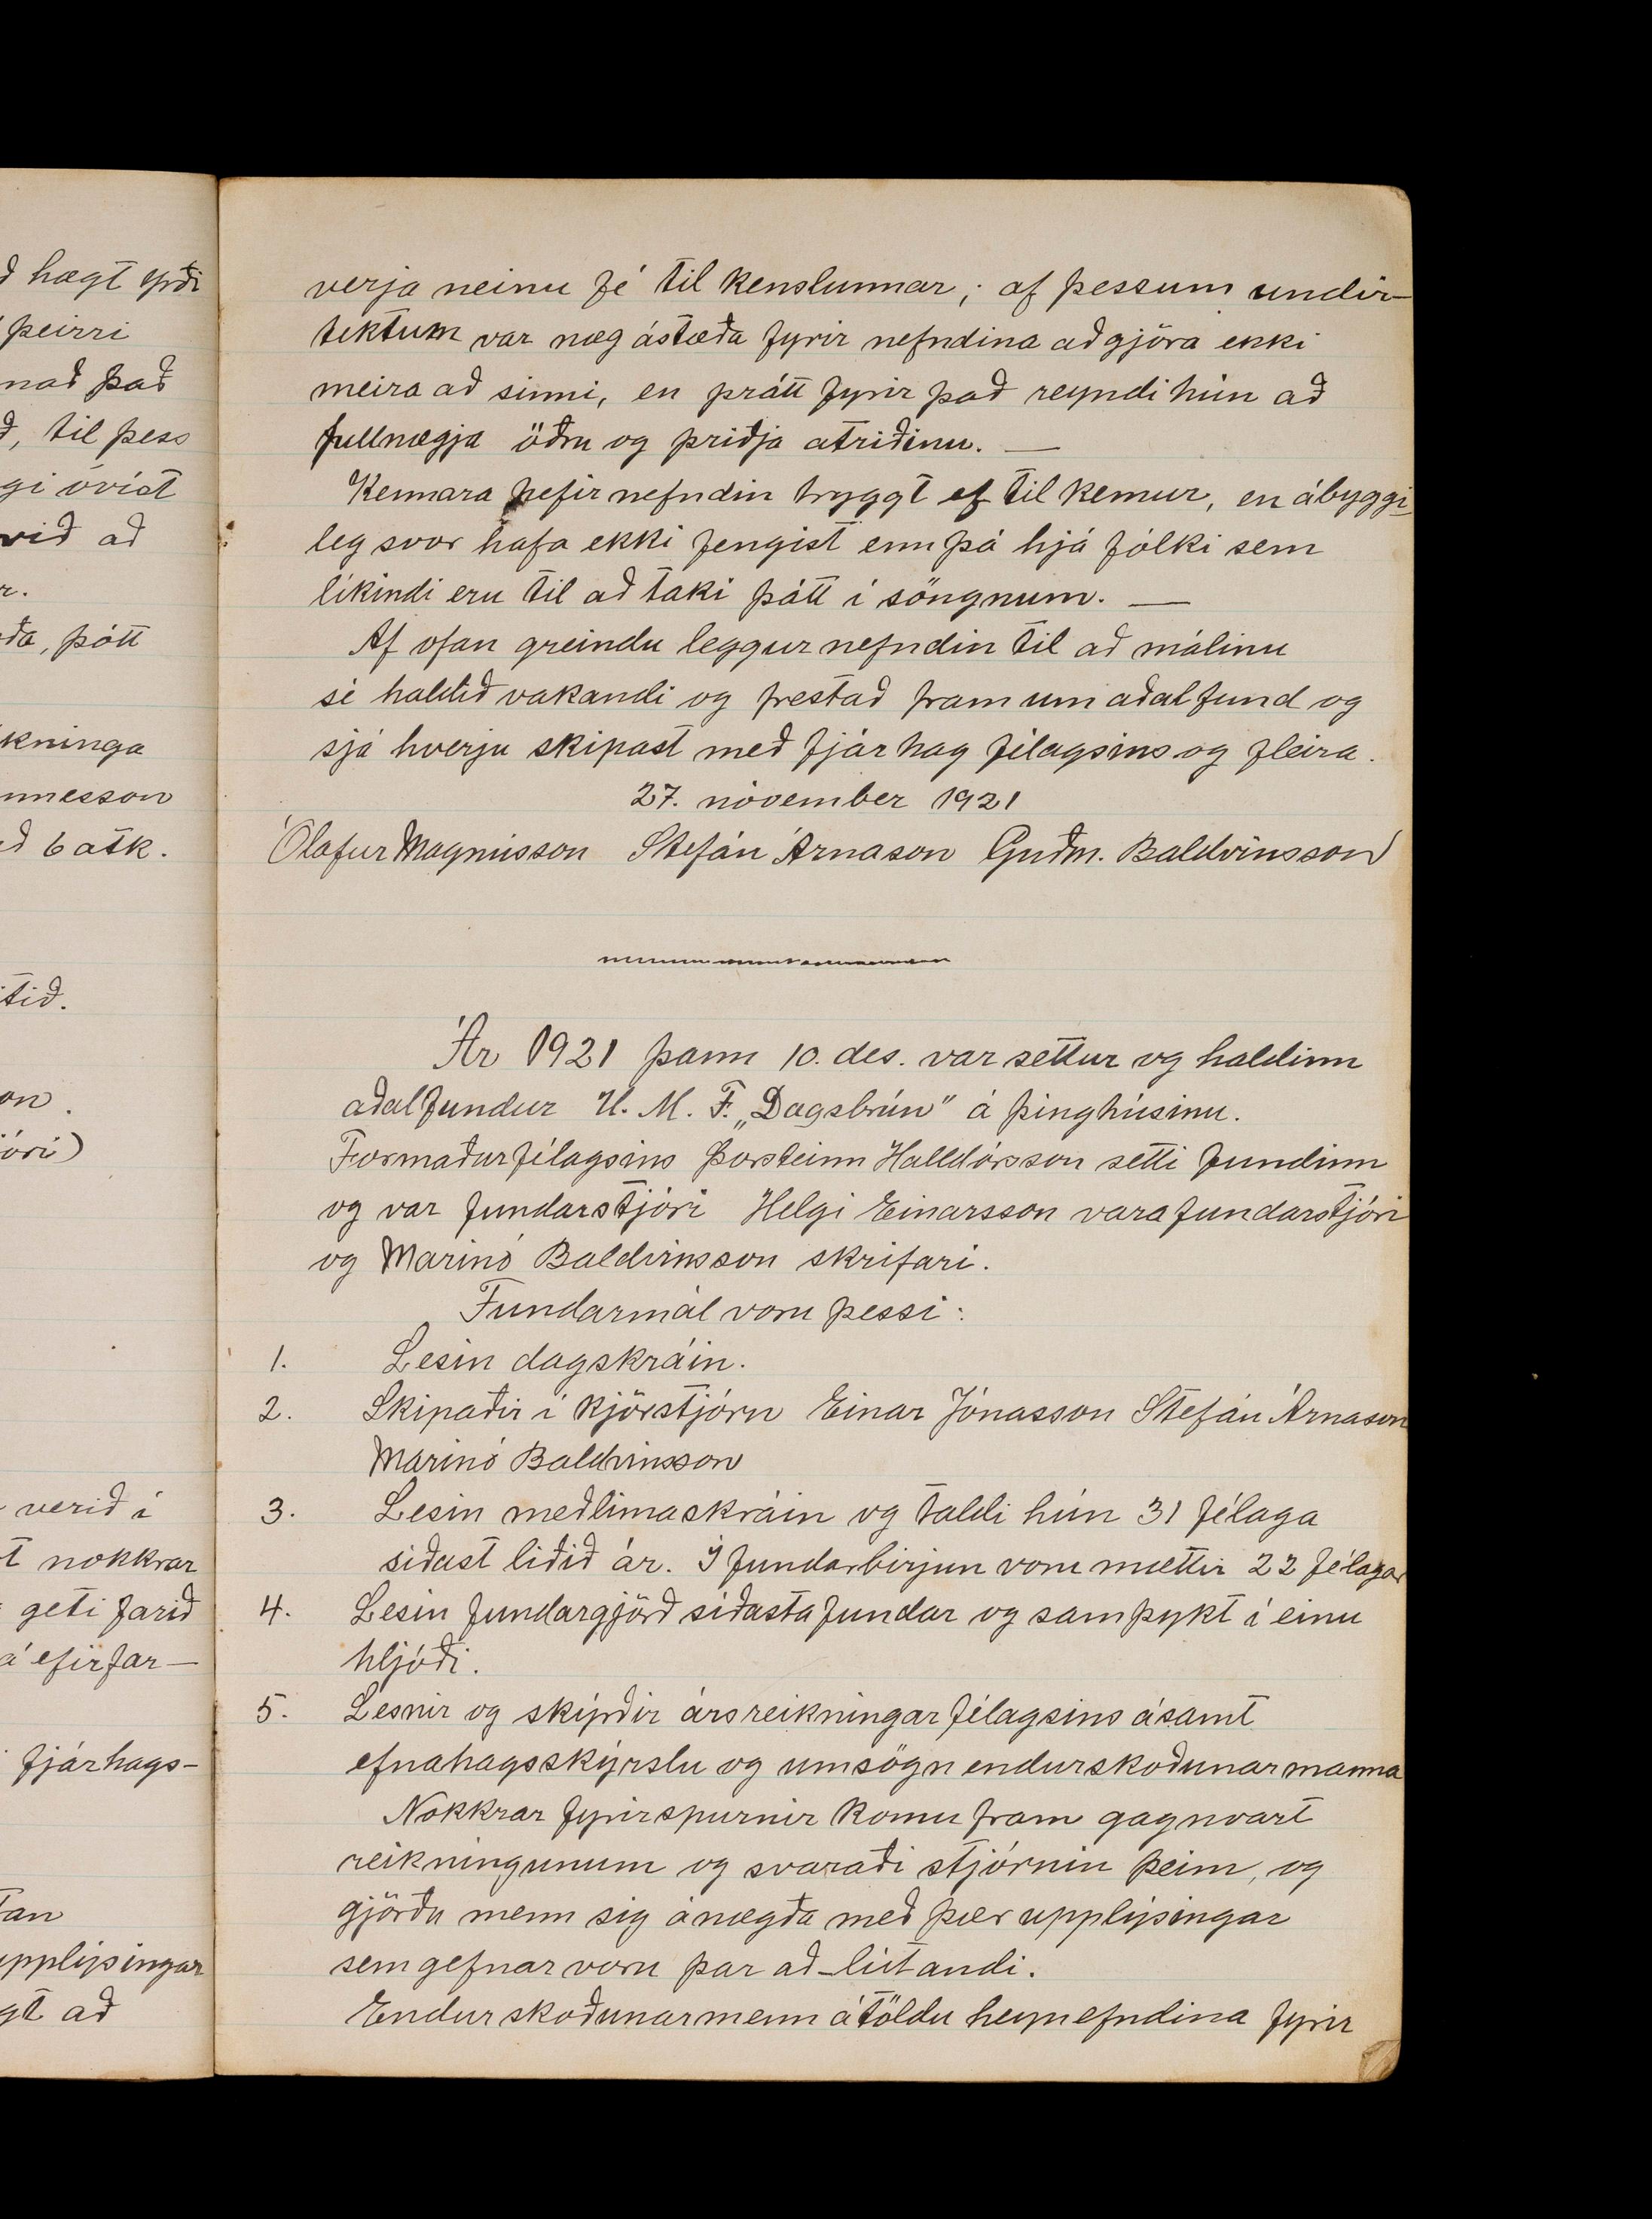 ð hægt yrði
þeirri
nað það
ð, til þess
gi óvíst
við að
r.
ða, þótt
kninga
nnesson
eð 6 atk.
tið.
on.
jóri)
verið í
t nokkrar
geti farið
á efirfar-
fjárhags-
tan
upplýsingar
gt að
verja neinu fé til kenslunnar; af þessum undir-
tektum var næg ástæða fyrir nefndina að gjöra ekki
meira að sinni, en þrátt fyrir það reyndi hún að
fullnægja öðru og þriðja atriðinu. —
Kennara hefir nefndin tryggt ef til kemur, en ábyggi-
leg svor hafa ekki fengist enn þá hjá fólki sem
líkindi eru til að taki þátt í söngnum. —
Af ofan greindu leggur nefndin til að málinu
sé haldið vakandi og frestað fram um aðalfund og
sjá hverju skipast með fjárhag félagsins og fleira.
27. nóvember 1921
Ólafur Magnússon Stefán Árnason Guðm. Baldvinsson
Ár 1921 þann 10. des. var settur og haldinn
aðalfundur U. M. F. „Dagsbrún" á þinghúsinu.
Formaður félagsins Þorsteinn Halldórsson setti fundinn
og var fundarstjóri Helgi Einarsson varafundarstjóri
og Marinó Baldvinsson skrifari.
Fundarmál voru þessi:
1. Lesin dagskráin.
2. Skipaðir í kjörstjórn Einar Jónasson Stefán Árnason
Marinó Baldvinsson
3. Lesin meðlimaskráin og taldi hún 31 félaga
síðast liðið ár. Í fundarbirjun voru mættir 22 félagar
4. Lesin fundargjörð síðasta fundar og samþykt í einu
hljóði.
5. Lesnir og skýrðir ársreikningar félagsins ásamt
efnahagsskýrslu og umsögn endurskoðunarmanna
Nokkrar fyrirspurnir komu fram gagnvart
reikningunum og svaraði stjórnin þeim, og
gjörðu menn sig ánægða með þær upplýsingar
sem gefnar voru þar að-lútandi.
Endurskoðunarmenn átöldu heynefndina fyrir